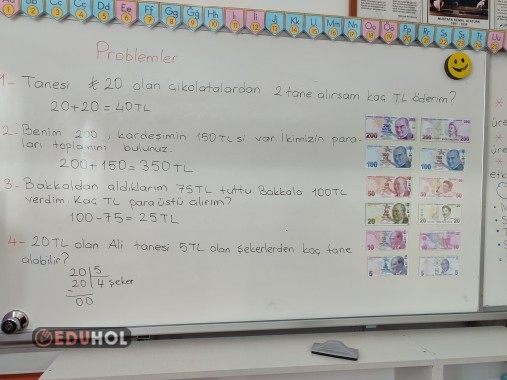 Problemler
1- Tanesi ₺20 olan çikolatalardan 2 tane alırsam kaç TL öderim?
20+20=40TL
2- Benim 200, kardeşimin 150TL si var. İkimizin para-
ları toplamını bulunuz.
200+150=350TL
3- Bakkaldan aldıklarım 75TL tuttu. Bakkala 100TL
verdim Kaç TL para üstü alırım?
100-75=25TL
4- 20TL olan Ali tanesi 5TL olan şekerlerden kaç tane
alabilir?
20 5
20 4 şeker
- 00
200
100
50
20
10
5
EDUHOL